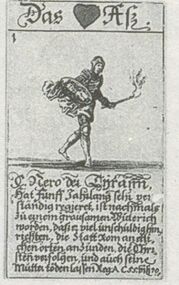 Das ♥ Aß.
1
C. Nero der Tyrann,
Hat fünff Jahr lang sehr ver,
ständig regieret, ist nachmals
zu einem grausamen Wüterich
worden, daß er viel unschuldig hin
richten, die Statt Rom an etli
chen orten anzünden, die Chri
sten verfolgen, und auch seine
Mutter tödten lassen